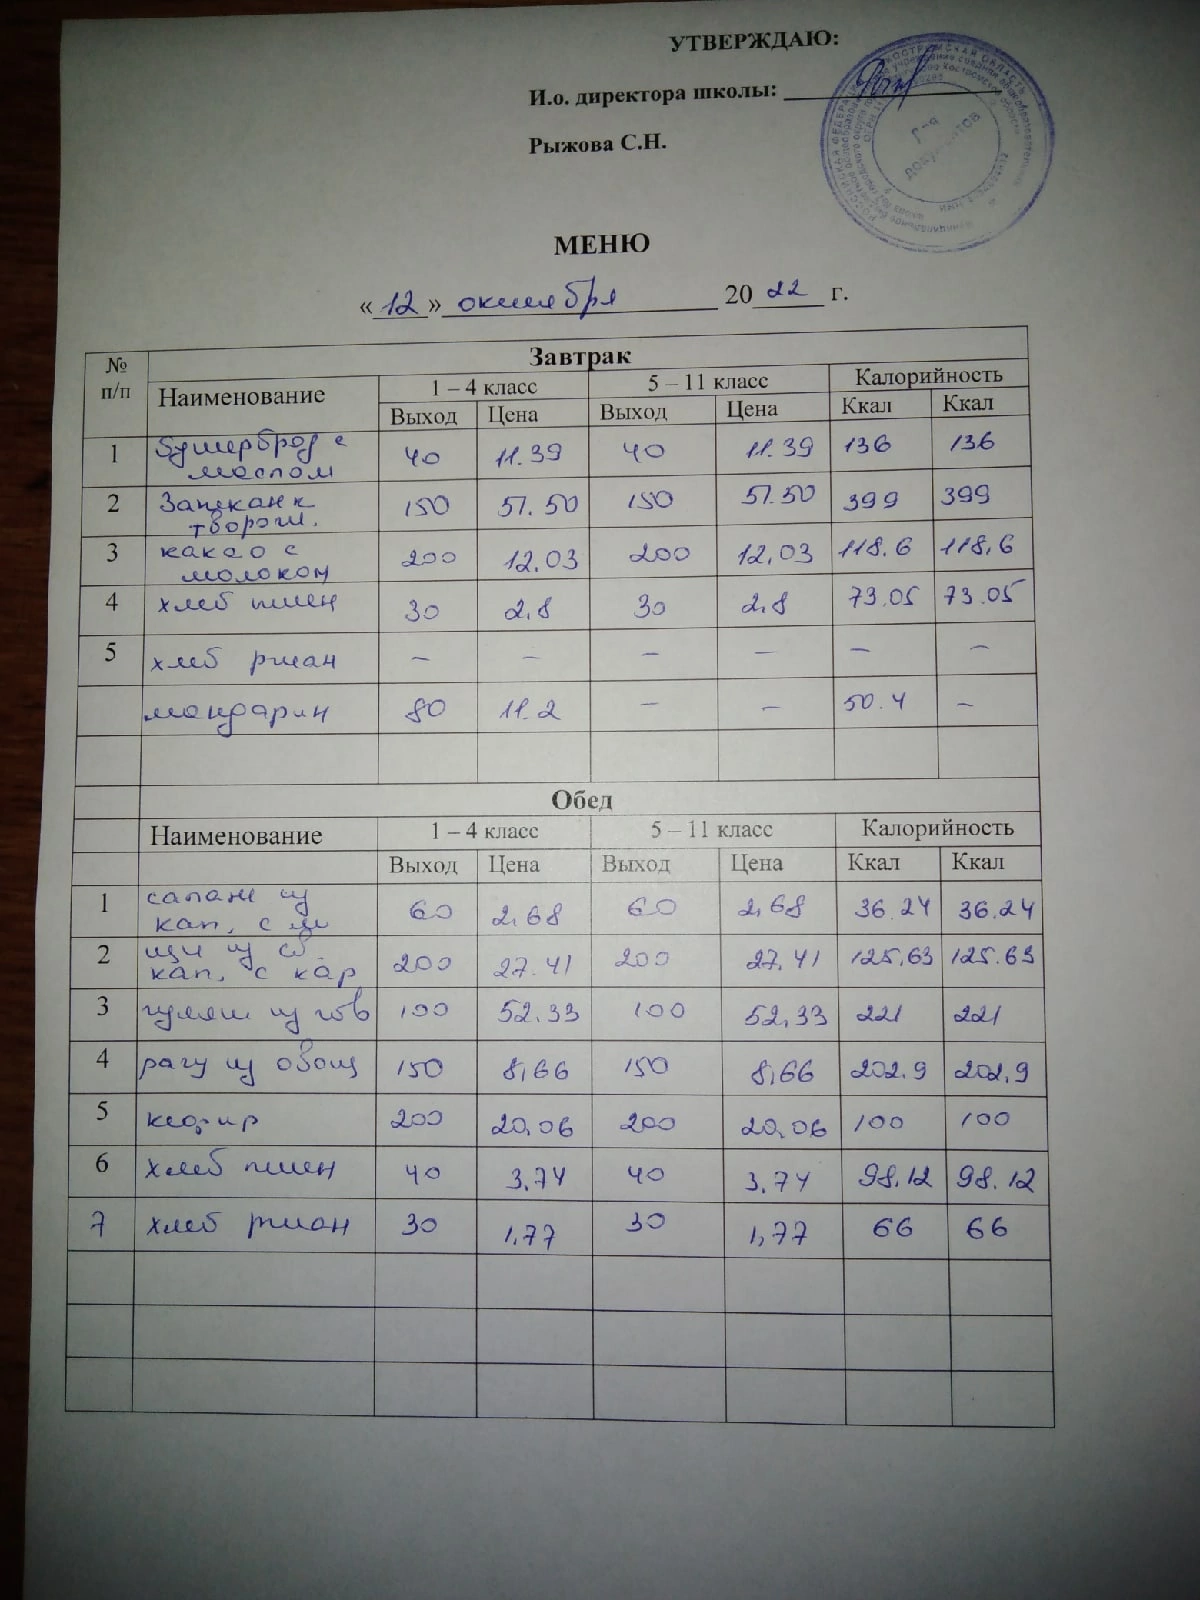 УТВЕРЖДАЮ:
И.о. директора школы:
Рыжова С.Н.
Для документов
МЕНЮ
«12» октября 2022 г.
№ п/п Завтрак
Наименование 1 – 4 класс 5 – 11 класс Калорийность
Выход Цена Выход Цена Ккал Ккал
1 бутерброд с маслом 40 11.39 40 11.39 136 136
2 Запеканк творожн. 150 51.50 150 51.50 399 399
3 какао с молоком 200 12.03 200 12,03 118.6 118,6
4 хлеб пшен 30 2,8 30 2,8 73.05 73.05
5 хлеб ржан – – – – – –
мандарин 80 11.2 – – 50.4 –
Обед
Наименование 1 – 4 класс 5 – 11 класс Калорийность
Выход Цена Выход Цена Ккал Ккал
1 салат из кап, с 60 2,68 60 2,68 36.24 36.24
2 щи из св. кап, с кар 200 27.41 200 27,41 125,63 125.63
3 гуляш из гов 100 52.33 100 52,33 221 221
4 рагу из овощ 150 8,66 150 8,66 202.9 202,9
5 кефир 200 20,06 200 20,06 100 100
6 хлеб пшен 40 3.74 40 3.74 98.12 98.12
7 хлеб ржан 30 1,77 30 1,77 66 66